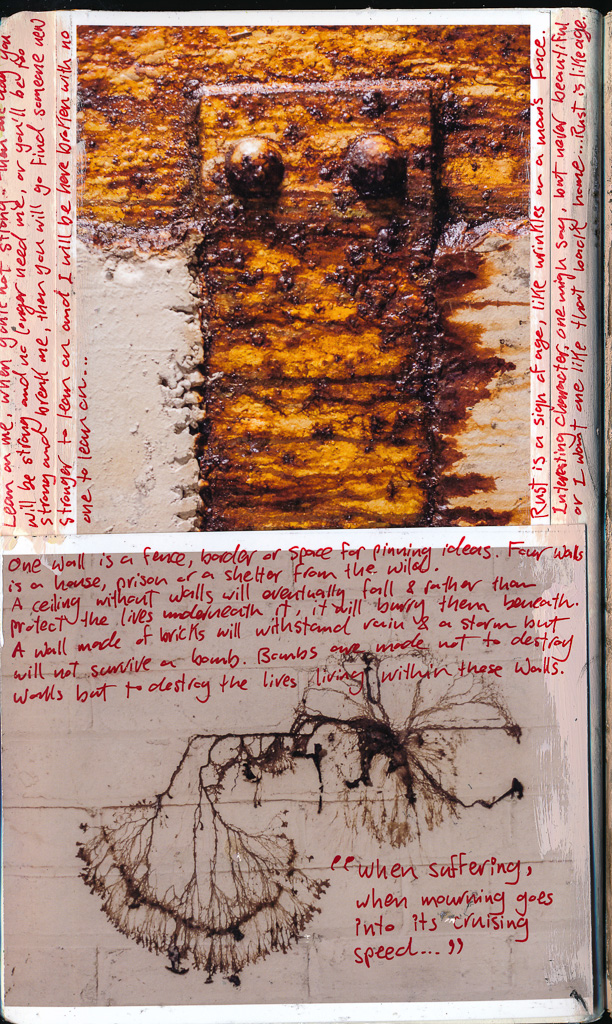 Lean on me, when you're not strong... than one day you
will be strong and no longer need me, or you'll be so
strong and break me, then you will go find someone new
stronger to lean on and I will be here broken with no
one to lean on...
Rust is a sign of age, like wrinkles on a man's face.
Interesting character, one migh say, but never beautiful
or I want one like that backe home... Rust is lifeage.
One wall is a fence, border or space for pinning ideas. Four walls
is a house, prison or a shelter from the wild.
A ceiling without walls will eventually fall & rather than
protect the lives underneath it, it will burry them beneath.
A wall made of bricks will withstand rain & a storm but
will not survive a bomb. Bombs are made not to destroy
walls but to destroy the lives living within these walls.
“when suffering,
when mourning goes
into its cruising
speed...”